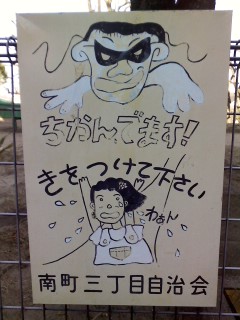 ちかんでます!
きをつけて下さい
わぁん
南町三丁目自治会